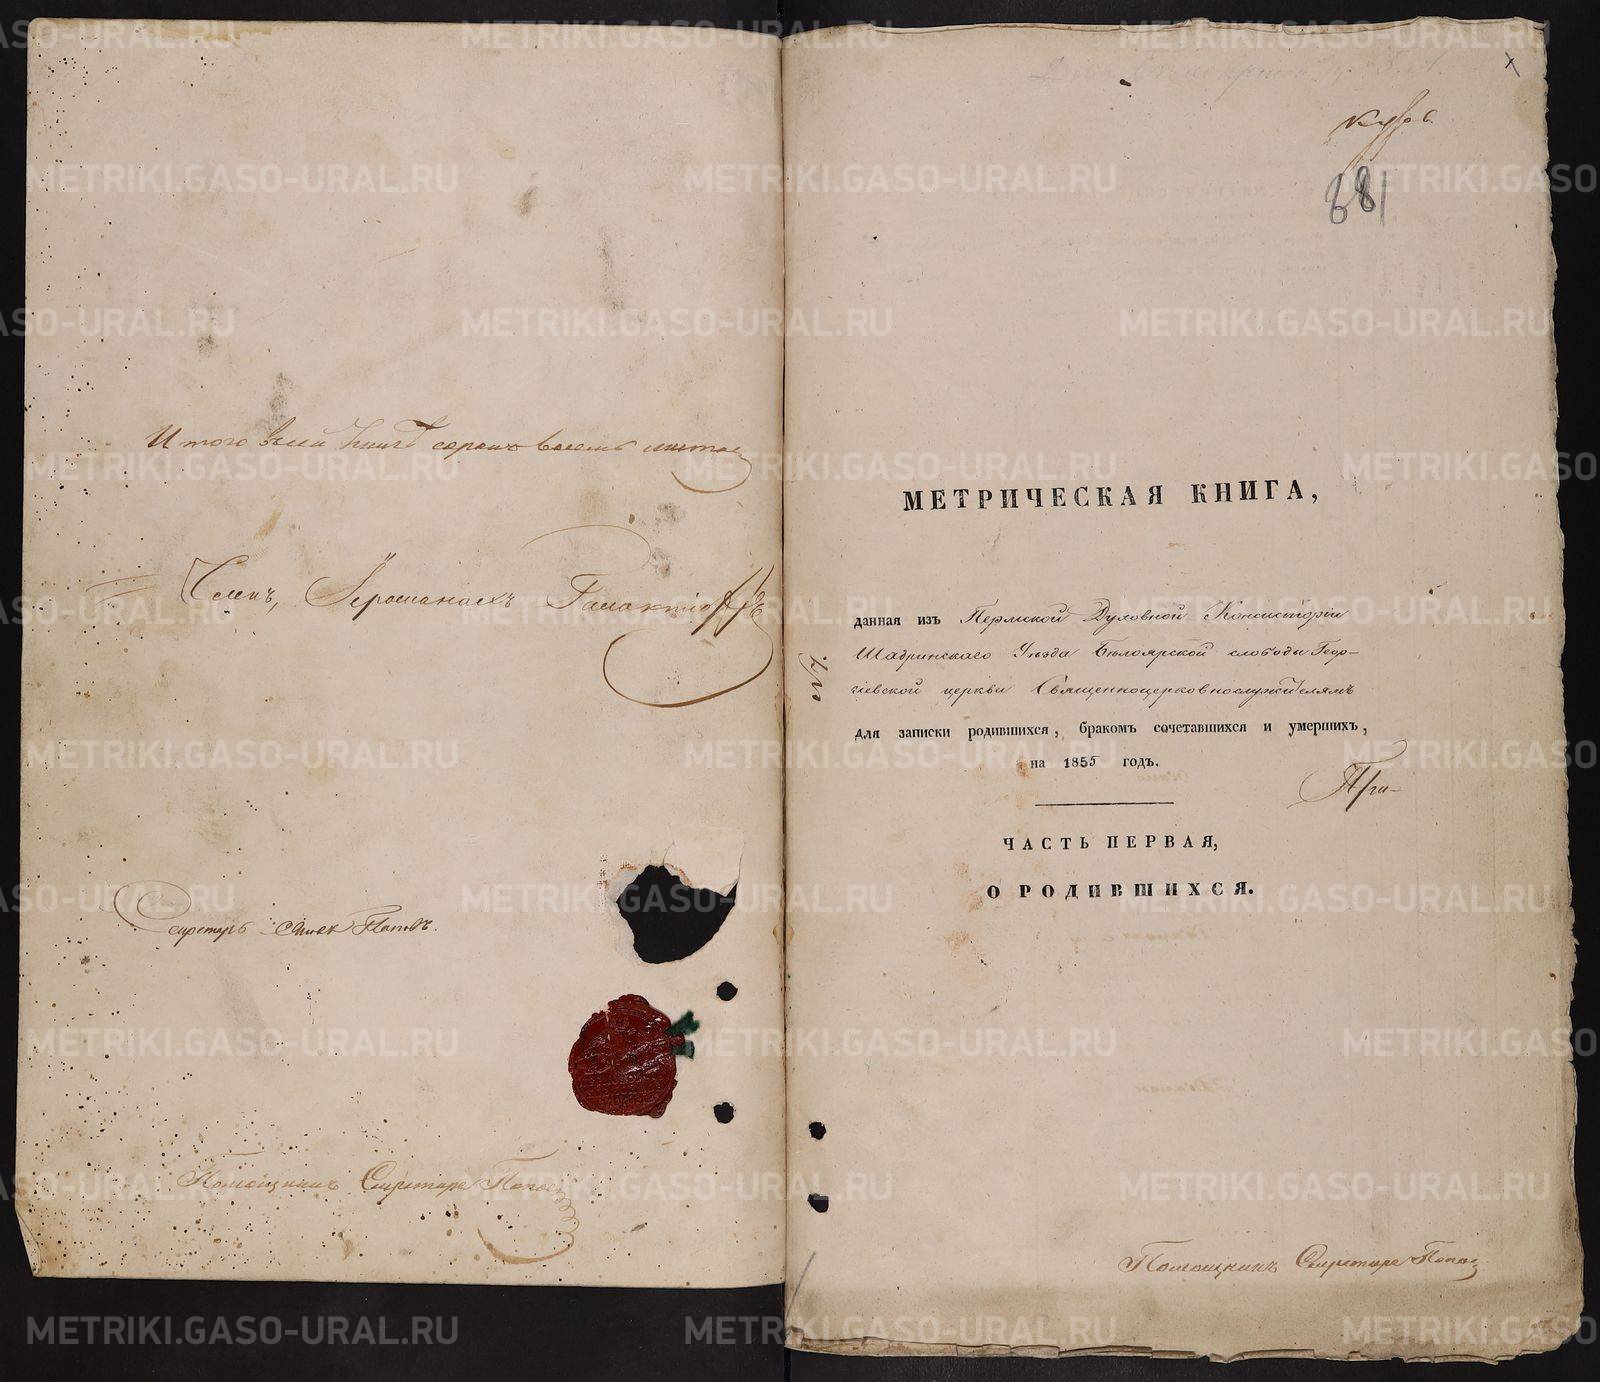 Итого в сей книгѣ сорокъ восемь листовъ
Членъ, Іеромонахъ Галактіонъ
Секретарь Попов
Помощникъ Секретаря Попов
881
МЕТРИЧЕСКАЯ КНИГА,
данная изъ Пермской Духовной Консисторіи
Шадринскаго Уѣзда Бѣлоярской слободы Геор-
гіевской церкви Священноцерковнослужителямъ
для записки родившихся, бракомъ сочетавшихся и умершихъ,
на 1855 годъ.
При-
ЧАСТЬ ПЕРВАЯ,
О РОДИВШИХСЯ.
Помощникъ Секретаря Попов
METRIKI.GASO-URAL.RU